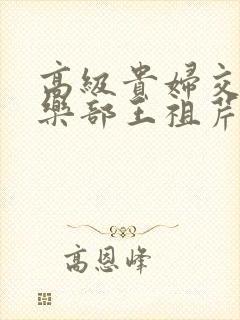 高級貴婦交
樂部王祖芹
高恩峰